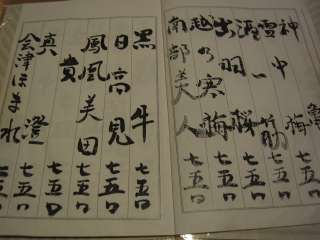 神亀
雪中梅
漣一筋
出羽桜 七五〇
越の寒梅 七五〇
南部美人 七五〇
黒牛 七五〇
日高見 七五〇
鳳凰美田 七五〇
貴 七五〇
真澄 七五〇
会津ほまれ 七五〇